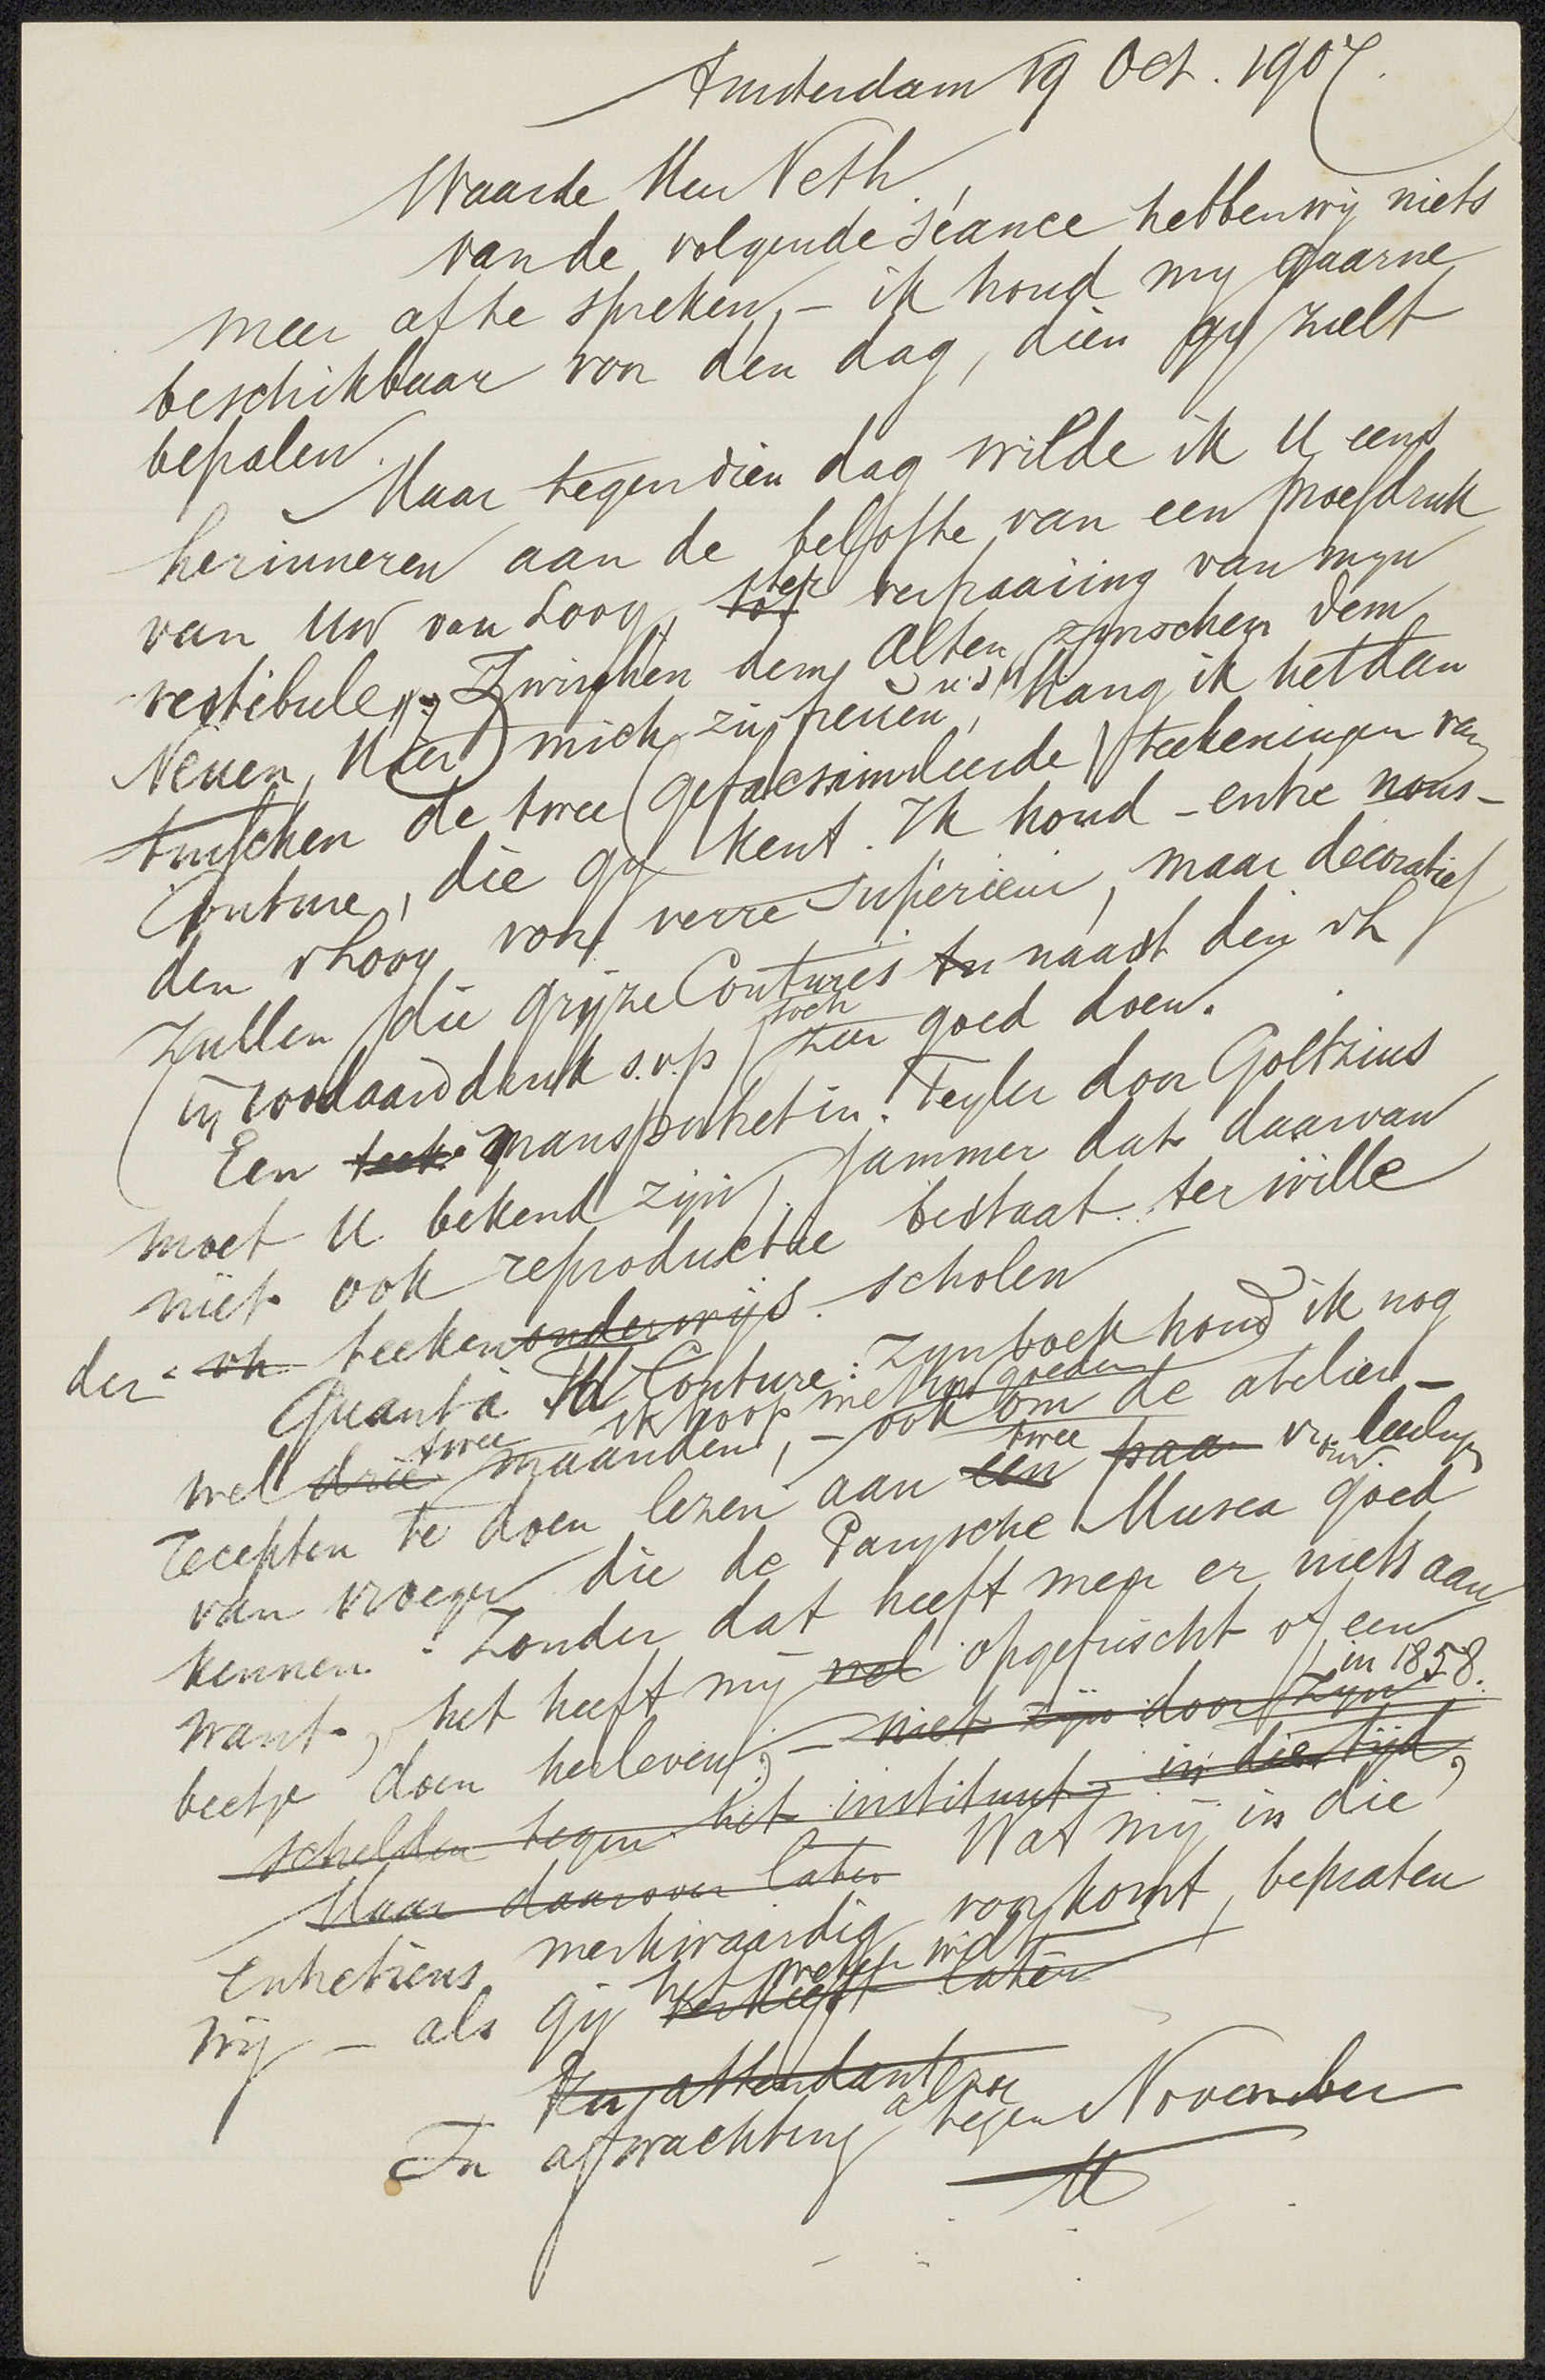 Amsterdam 19 Oct. 1907.
Waarde Heer Veth,
van de volgende séance hebben wij niets
meer af te spreken, – ik houd my gaarne
beschikbaar voor den dag, dien gij zult
bepalen.
Maar tegen dien dag wilde ik U eens
herinneren aan de belofte van een proefdruk
van Uw van Looy, tot ter verfraaiing van myn
vestibule. Zwischen dem Alten, zwischen dem
Neuen, hier mich zu freuen, hang ik het dan
tusschen de twee (gefacsimileerde) teekeningen van
Couture, die gij kent. Ik houd – entre nous –
den vLooy voor verre supérieur, maar decoratief
zullen die grijze Coutures tu naast den vL
(in roodaarddruk s.v.p. toch zeer goed doen.
Een teek mansportret in Teyler door Goltzius
moet U bekend zijn, jammer dat daarvan
niet ook reproductie bestaat ter wille
der vh teekenonderwijs scholen
Quant à Th Couture: zyn boek houd ik nog
wel drie twee maanden, ik hoop met uw goedvn – ook om de atelier –
recepten te doen lezen aan een twee paar vrouw. leerlingn
van vroeger die de Parijsche Musea goed
kennen. Zonder dat heeft men er niets aan
want, het heeft mij wel opgefrischt of een
beetje doen herleven, – niet zijn door zyn in 1858.
schelden tegen het instituut in dien tijd,
Maar daarover later Wat mij in die
Entretiens merkwaardig voorkomt, bepraten
wij – als gij het weten wilt verkiest later
En attendant
In afwachting alzoo tegen November